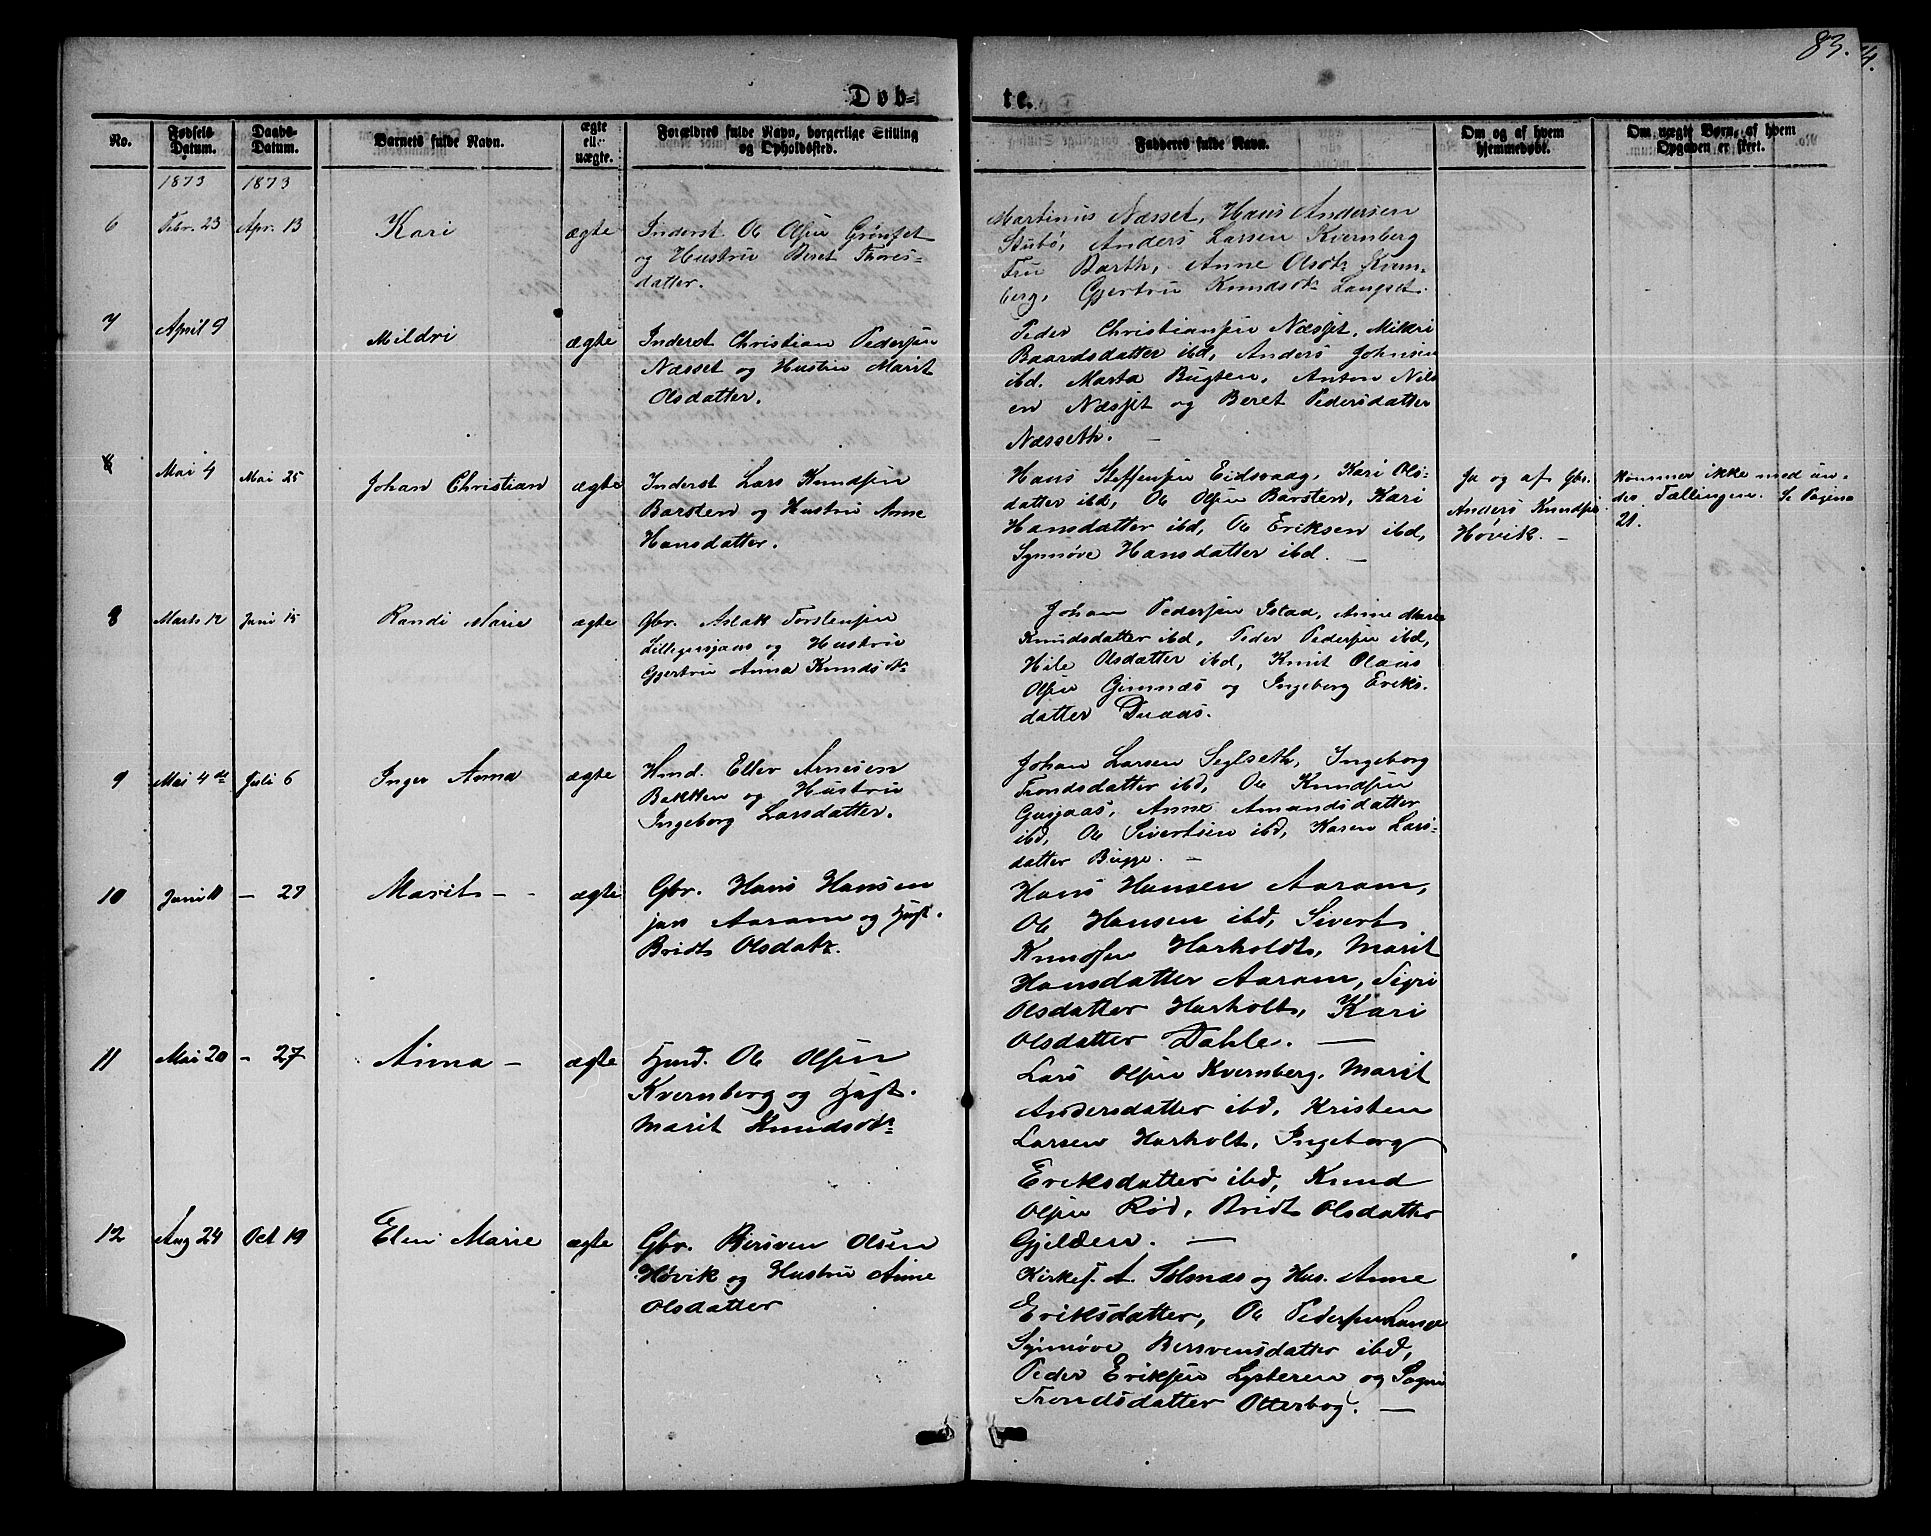 83.
4.
Døb-
te.
No.
Fødsels Datum.
Daabs-Datum.
Barnets fulde Navn.
ægte ell. uægte.
Forældres fulde Navn, borgerlige Stilling
og Opholdssted.
Fadderes fulde Navn.
Om og af hvem
hjemmedøbt.
Om uægte Børn, af hvem
Opgaven er skeet.
1873
1873
6
Febr. 23
Apr. 13
Kari
ægte
Inderst Ole Olsen Grønset
og Hustru Beret Thores-
datter.
Martinus Næsset, Hans Andersen
Stubø, Anders Larsen Kvernberg
Fru Barth, Anne Olsdtr Kvern-
berg, Gjertru Knudsdtr Langset.
7
April 9
Mildri
ægte
Inderst Christian Pedersen
Næsset og Hustru Marit
Olsdatter.
Peder Christiansen Næsset, Mildri
Baardsdatter ibd, Anders Johnsen
ibd. Marta Bugten, Anton Nils
en Næsset og Beret Pedersdatter
Næsseth. —
Mai 4
Mai 25
Johan Christian
ægte
Inderst Lars Knudsen
Barsten og Hustru Anne
Hansdatter.
Hans Steffensen Eidsvaag, Kari Ols-
datter ibd, Ole Olsen Barsten, Kari
Hansdatter ibd, Ole Eriksen ibd,
Synnøve Hansdatter ibd. —
Ja og af Gbr.
Anders Knudsen
Høvik. —
Kommer ikke med un-
der Tællingen. Se Pagina
21.
8
Marts 12
Juni 15
Randi Marie
ægte
Gbr. Aslak Torstensen
Lillegusjaas og Hustru
Gjertru Anna Knudsdtr
Johan Pedersen Istad, Anne Marie
Knudsdatter ibd, Peder Pedersen ibd,
Hile Olsdatter ibd, Knut Olaus
Olsen Gimnæs og Ingeborg Eriks-
datter Duaas.
9
Mai 4de
Juli 6
Inger Anna
ægte
Hmd. Ellev Arnesen
Bakken og Hustru
Ingeborg Larsdatter.
Johan Larsen Seglseth, Ingeborg
Trondsdatter ibd, Ole Knudsen
Gusjaas, Anne Amundsdatter
ibd, Ole Sivertsen ibd, Karen Lars-
datter Bugge. —
10
Juni 11
— 27
Marit - -
ægte
Gbr. Hans Hansen
jun Aaram og Hust.
Bridt Olsdatr.
Hans Hansen Aaram,
Ole Hansen ibd, Sivert
Knudsen Harholdt, Marit
Hansdatter Aaram, Sigri
Olsdatter Harholt, Kari
Olsdatter Dahle. —
11
Mai 20
- 27
Anna -
ægte
Hmd. Ole Olsen
Kvernberg og Hust.
Marit Knudsdtr
Lars Olsen Kvernberg, Marit
Andersdatter ibd, Kristen
Larsen Harholt, Ingeborg
Eriksdatter ibd, Knud
Olsen Rød, Bridt Olsdatter
Gjelden. —
12
Aug 24
Oct 19
Elen Marie
ægte
Gbr. Bersven Olsen
Høvik og Hustru Anne
Olsdatter
Kirkes. A. Solnæs og Hus. Anne
Eriksdatter, Ole Pedersen Lange
Synnøve Bersvensdatter ibd,
Peder Eriksen Lysteren og Sogni
Trondsdatter Otterbog. —